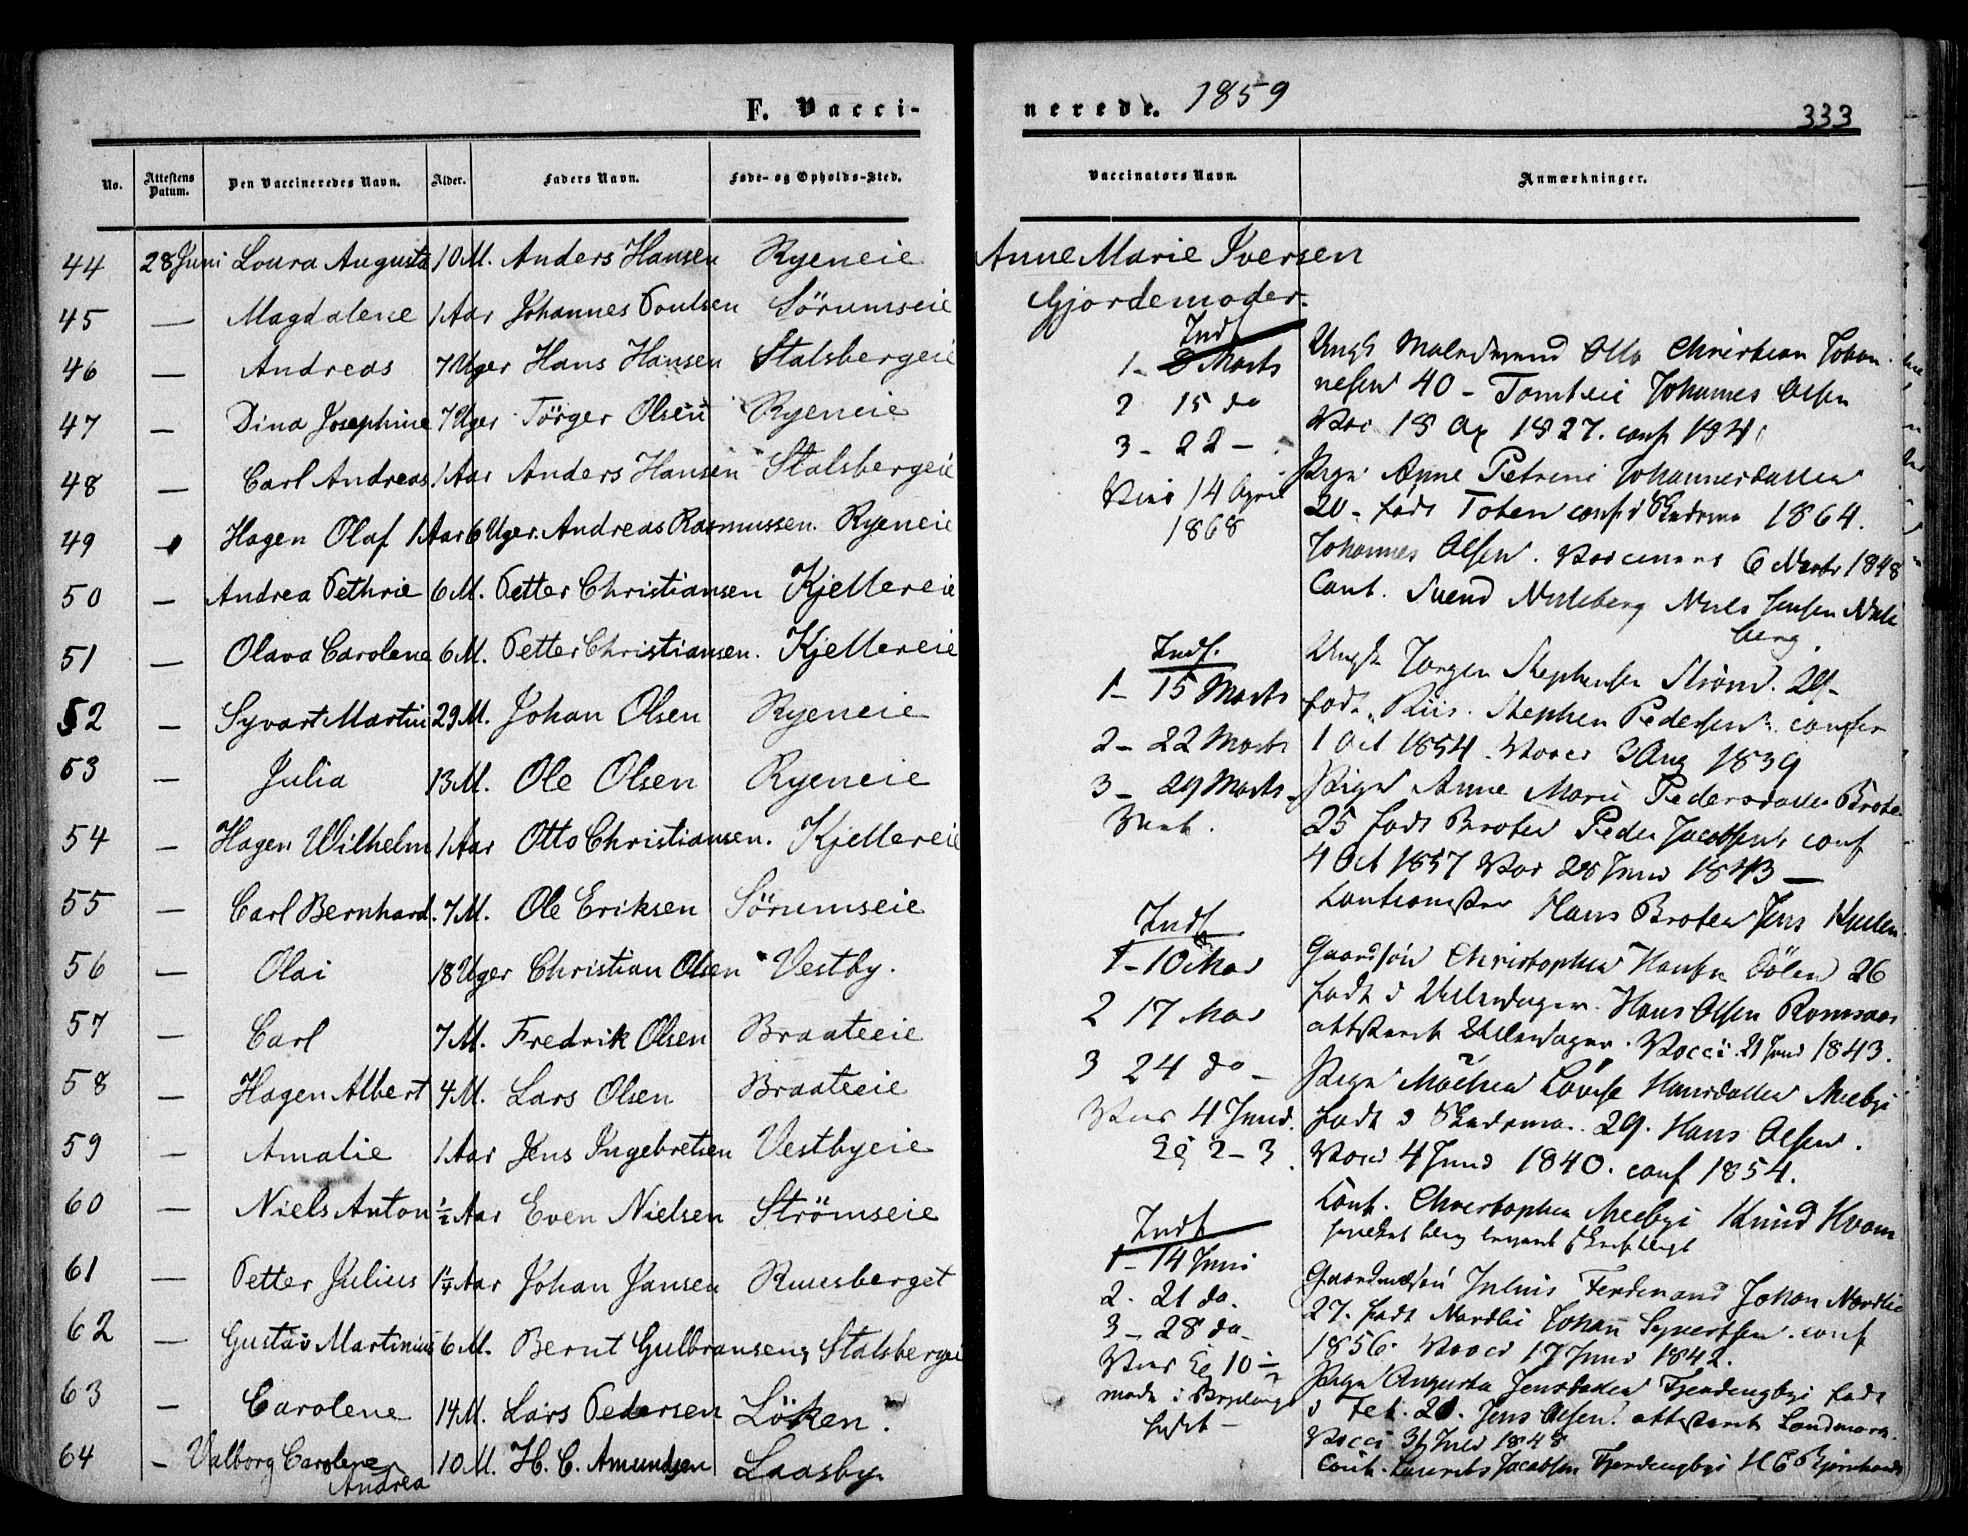 F. Vacci-
nerede. 1859
333
No. Attestens Datum. Den Vaccineredes Navn. Alder. Faders Navn. Føde- og Opholds-Sted.
Vaccinators Navn. Anmærkninger.
44 28 Juni Loura Augusta 10 M. Anders Hansen Ryeneie
45 — Magdalene 1 Aar Johannes Poulsen Sörumseie
46 — Andreas 7 Uger Hans Hansen Stalsbergeie
47 — Dina Josephine 7 Uger Törger Olsen Ryeneie
48 — Carl Andreas 1 Aar Anders Hansen Stalsbergeie
49 — Hagen Olaf 1 Aar 6 Uger. Andreas Rasmussen. Ryeneie
50 — Andrea Pethrie 6 M. Petter Christiansen Kjellereie
51 — Olava Carolene 6 M. Petter Christiansen. Kjellereie
52 — Syvart Martin 29 M. Johan Olsen Ryeneie
53 — Julia 13 M. Ole Olsen Ryeneie
54 — Hagen Wilhelm 1 Aar Otto Christiansen. Kjellereie
55 — Carl Bernhard. 7 M. Ole Eriksen Sörumseie
56 — Olai 18 Uger Christian Olsen Vestby.
57 — Carl 7 M. Fredrik Olsen Braateeie
58 — Hagen Albert 4 M. Lars Olsen Braateeie
59 — Amalie 1 Aar Jens Ingebretsen Vestbyeie
60 — Niels Anton ½ Aar Even Nielsen Strömseie
61 — Petter Julius 1¼ Aar Johan Jansen Ruusberget
62 — Gustav Martinius 6 M. Bernt Gulbransens Stalsbergeie
63 — Carolene 14 M. Lars Pedersen Löken.
64 — Valborg Carolene Andrea 10 M. H. C. Amundsen Laasby
Anne Marie Iversen
Gjordemoder.
Indf
1 - 8 Marts
2 15 do
3 - 22 -
14 April
1868
Ungk Otto Christian Johan
nesen 40 - Tomteie Johannes Olsen
18 1827. conf 184
Pige Anne Petrine Johannesdatter
20 - født Toten conf i Skedsmo 1864.
Johannes Olsen. 6 1848
Caut. Svend Nuleberg Niels Jensen Nule
berg
Indf.
1 - 15 Marts
2 - 22 Marts
3 - 29 Marts
Ungk Jørgen Stephensen Strøm. 29 -
født Riis. Stephen Pedersen. confir
1 Oct 1854. Vacci 2 Aug 1839
Pige Anne Marie Pedersdatter Brote
25 født Broten Peder Jacobsen, conf
4 Oct 1857 Vac 28 Juni 1843 —
Hans Broten Jens
Indf
1 - 10 Mai
2 17 Mai
3 24 do -
4 Juni.
2 - 3
Gaardsøn Christopher Hansen Dölen 26
født i Ullensager. Hans Olsen Romsaas
attesteret Ullensager. Vacci. 21 Juni 1843.
Pige Louise Hansdatter
født i Skedsmo. 29. Hans Olsen.
Vacci 4 Juni 1840. conf 1854.
Caut. Christopher Knud Kvam
Indf
1 - 14 Juni
2. 21 do.
3 - 28 do -
10
Julius Ferdinand Johan Nordlie
27. født Nordlie Johan Syvertsen. conf
1856. Vacci 17 Juni 1842.
Pige Augusta Jensdatter født
i Fet. 20. Jens Olsen. attesteret
Vacci 1848
Caut. Laurits Jacobsen H C